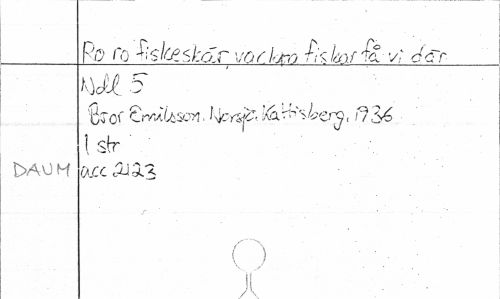 Ro ro fiskeskär, vackra fiskar få vi där
Ndl 5
Bror Emilsson. Norsjö. Kattisberg. 1936
1 str
DAUM acc 2123